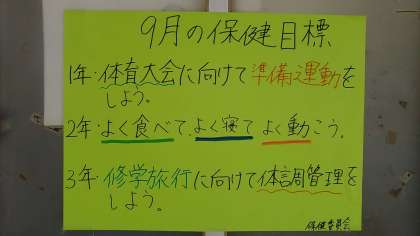 9月の保健目標
1年・体育大会に向けて準備運動を
しよう。
2年・よく食べて、よく寝て よく動こう。
3年・修学旅行に向けて体調管理を
しよう。
保健委員会